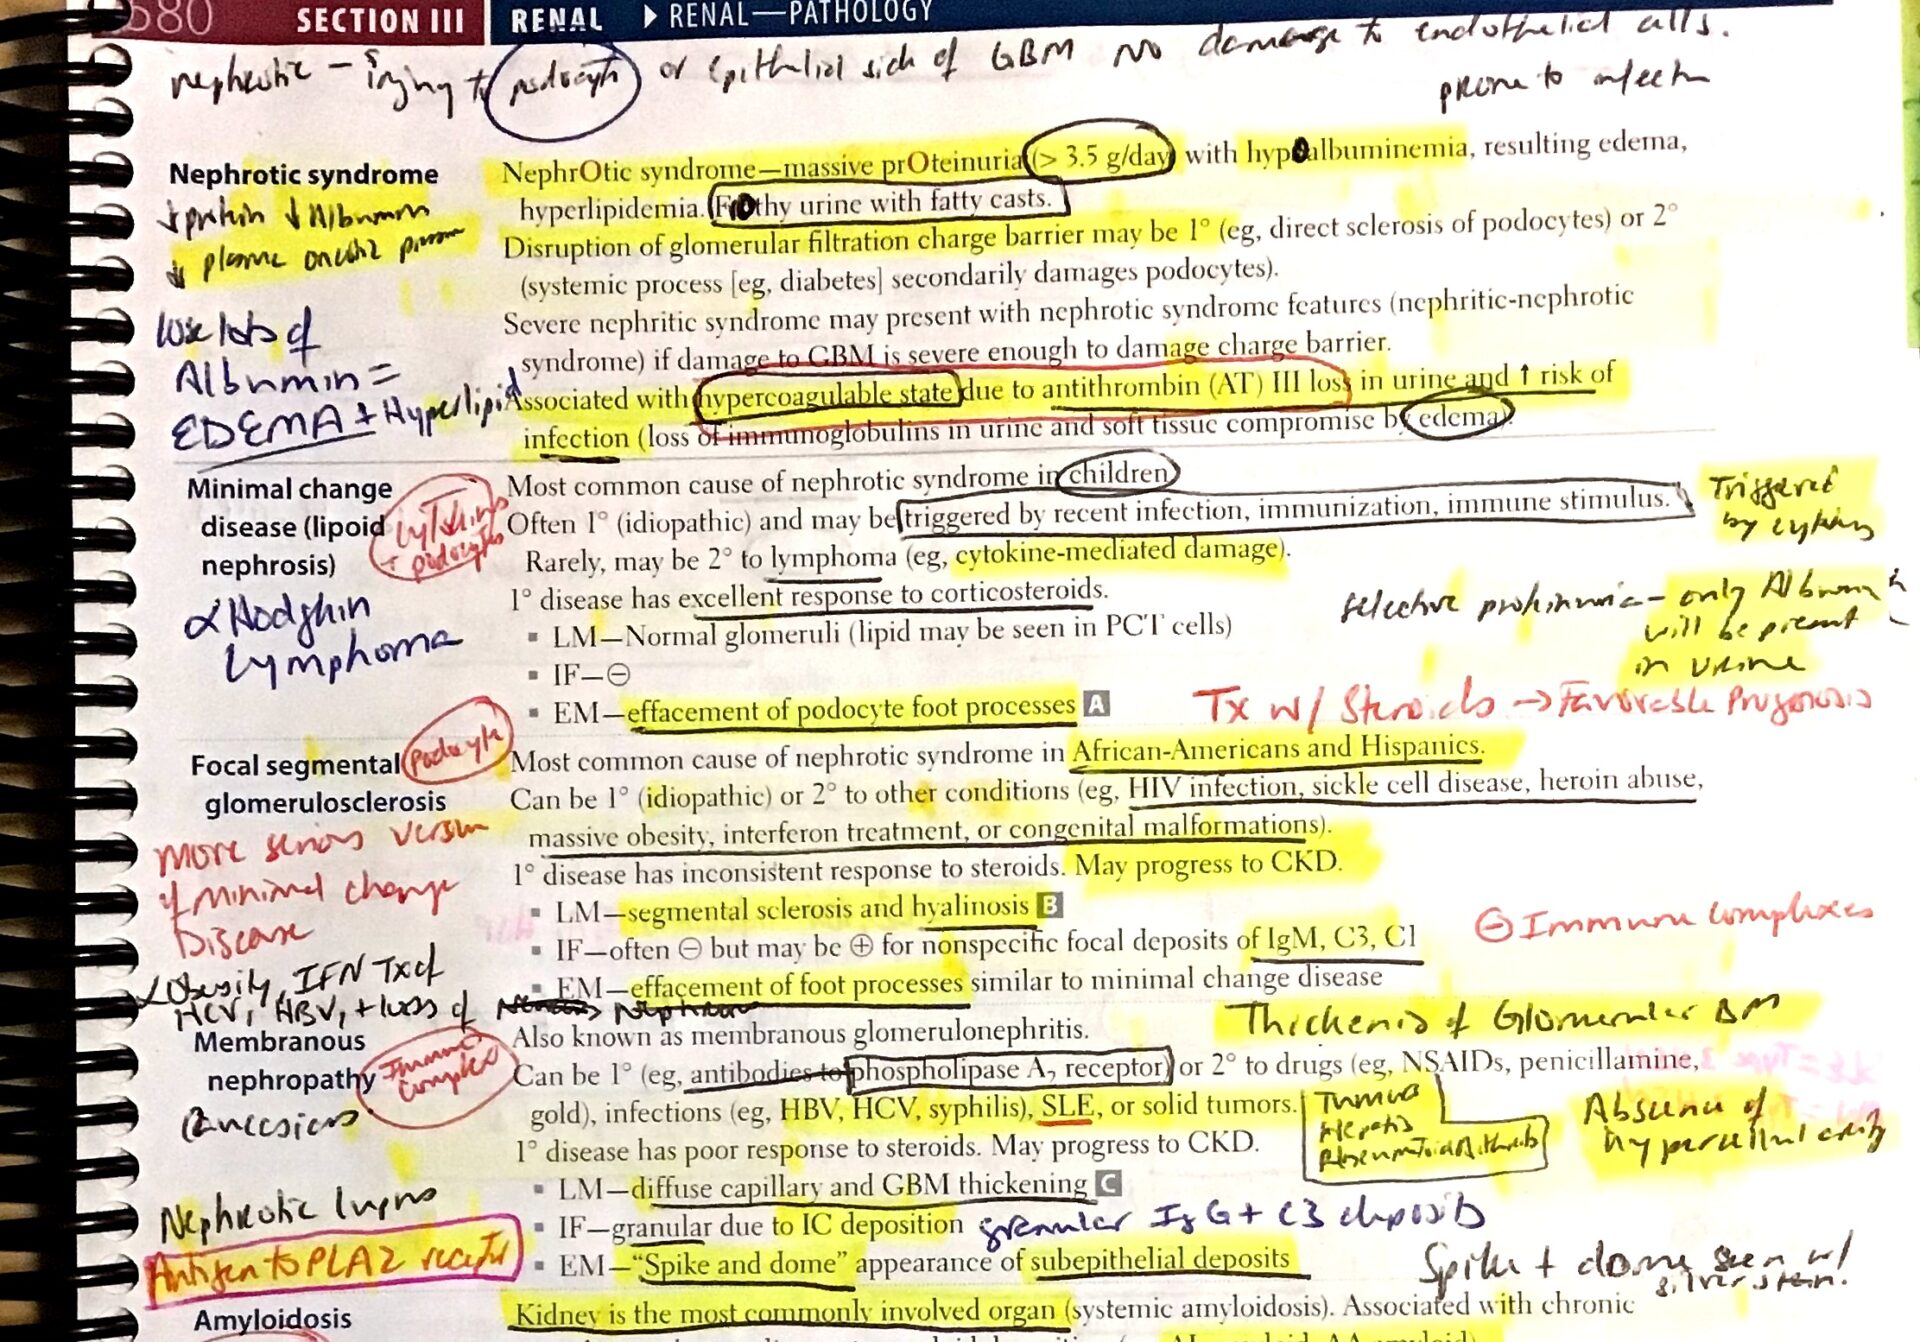 580 SECTION III RENAL ▶ RENAL—PATHOLOGY
nephrotic – injury to podocyte or epithelial side of GBM NO damage to endothelial cells.
prone to infection
Nephrotic syndrome
↓ protein ↓ Albumin
↓ plasma oncotic pressure
Lose lots of
Albumin =
EDEMA + Hyperlipid
NephrOtic syndrome—massive prOteinuria (> 3.5 g/day) with hypOalbuminemia, resulting edema,
hyperlipidemia. FrOthy urine with fatty casts.
Disruption of glomerular filtration charge barrier may be 1° (eg, direct sclerosis of podocytes) or 2°
(systemic process [eg, diabetes] secondarily damages podocytes).
Severe nephritic syndrome may present with nephrotic syndrome features (nephritic-nephrotic
syndrome) if damage to GBM is severe enough to damage charge barrier.
Associated with hypercoagulable state due to antithrombin (AT) III loss in urine and ↑ risk of
infection (loss of immunoglobulins in urine and soft tissue compromise by edema).
Minimal change
disease (lipoid
nephrosis)
cytokines
+ podocytes
Hodgkin
Lymphoma
Most common cause of nephrotic syndrome in children
Often 1° (idiopathic) and may be triggered by recent infection, immunization, immune stimulus.
Rarely, may be 2° to lymphoma (eg, cytokine-mediated damage).
1° disease has excellent response to corticosteroids.
▪ LM—Normal glomeruli (lipid may be seen in PCT cells)
▪ IF—⊖
▪ EM—effacement of podocyte foot processes A
Triggered
by cytokines
selective proteinuria – only Albumin
will be present
in urine
Tx w/ Steroids → Favorable Prognosis
Focal segmental
glomerulosclerosis
Podocyte
More serious version
of minimal change
Disease
Obesity, IFN Tx of
HCV, HBV, + loss of Nephrons
Most common cause of nephrotic syndrome in African-Americans and Hispanics.
Can be 1° (idiopathic) or 2° to other conditions (eg, HIV infection, sickle cell disease, heroin abuse,
massive obesity, interferon treatment, or congenital malformations).
1° disease has inconsistent response to steroids. May progress to CKD.
▪ LM—segmental sclerosis and hyalinosis B
▪ IF—often ⊖ but may be ⊕ for nonspecific focal deposits of IgM, C3, C1
▪ EM—effacement of foot processes similar to minimal change disease
⊖ Immune complexes
Membranous
nephropathy
Immune
Complex
Caucasians
Nephrotic lupus
Antigen to PLA2 receptor
Also known as membranous glomerulonephritis.
Can be 1° (eg, antibodies to phospholipase A₂ receptor) or 2° to drugs (eg, NSAIDs, penicillamine,
gold), infections (eg, HBV, HCV, syphilis), SLE, or solid tumors.
1° disease has poor response to steroids. May progress to CKD.
▪ LM—diffuse capillary and GBM thickening C
▪ IF—granular due to IC deposition granular IgG + C3 deposits
▪ EM—“Spike and dome” appearance of subepithelial deposits
Thickening of Glomerular BM
Tumors
Hepatitis
Rheumatoid Arthritis
Absence of
hypercellularity
Spike + dome seen w/
silver stain.
Amyloidosis
Kidney is the most commonly involved organ (systemic amyloidosis). Associated with chronic